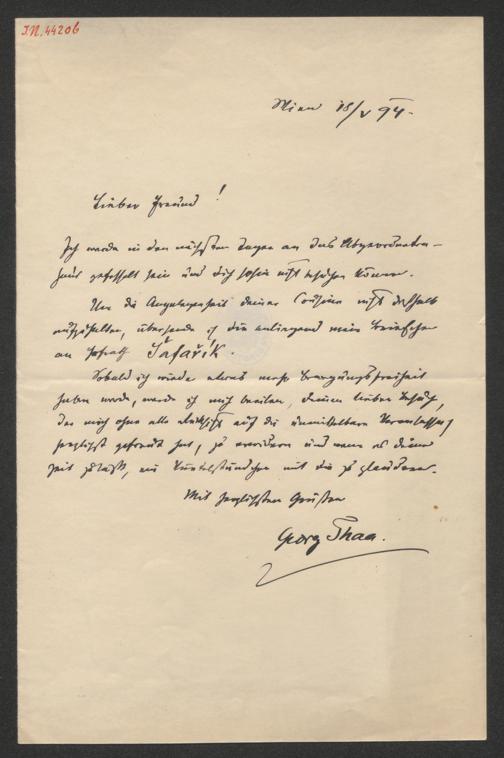 I.N. 44206
Wien 18/V 94.
Lieber Freund!
Ich werde in den nächsten Tagen an das Abgeordneten-
haus gefesselt sein und dich sohin nicht besuchen können.
Um die Angelegenheit deiner Cousine nicht deshalb
aufzuhalten, übersende ich dir anliegend mein Briefchen
an Hofrath Šafařik.
Sobald ich wieder etwas mehr Bewegungsfreiheit
haben werde, werde ich mich beeilen, deinen lieben Besuch,
der mich ohne alle Rücksicht auf die unmittelbare Veranlassung
herzlichst gefreut hat, zu erwidern und wenn es deine
Zeit zuläßt, ein Viertelstündchen mit dir zu plaudern.
Mit herzlichsten Grüßen
Georg Thaa.